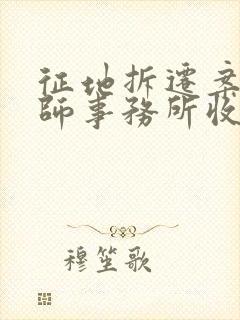 征地拆遷案
師事務所收
穆笙歌